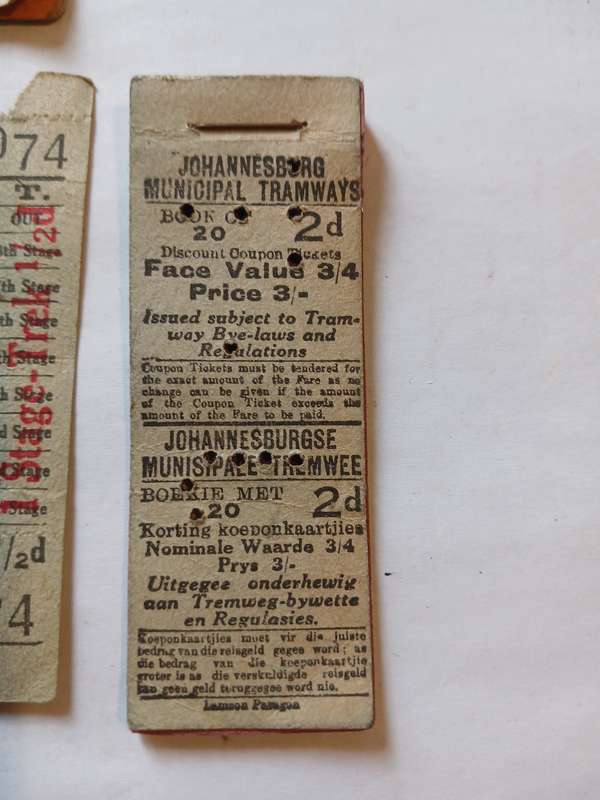 074
T.
OUT
8th Stage
7th Stage
th Stage
th Stage
th Stage
d Stage
Stage
Stage
1 Stage-Trek 1½d
½d
4
JOHANNESBURG
MUNICIPAL TRAMWAYS
BOOK OF
20
2d
Discount Coupon Tickets
Face Value 3/4
Price 3/-
Issued subject to Tram-
way Bye-laws and
Regulations
Coupon Tickets must be tendered for
the exact amount of the Fare as no
change can be given if the amount
of the Coupon Ticket exceeds the
amount of the Fare to be paid.
JOHANNESBURGSE
MUNISIPALE TREMWEE
BOEKIE MET
20
2d
Korting koeponkaartjies
Nominale Waarde 3/4
Prys 3/-
Uitgegee onderhewig
aan Tremweg-bywette
en Regulasies.
Koeponkaartjies moet vir die juiste
bedrag van die reisgeld gegee word; as
die bedrag van die koeponkaartjie
groter is as die verskuldigde reisgeld
kan geen geld teruggegee word nie.
Lamson Paragon